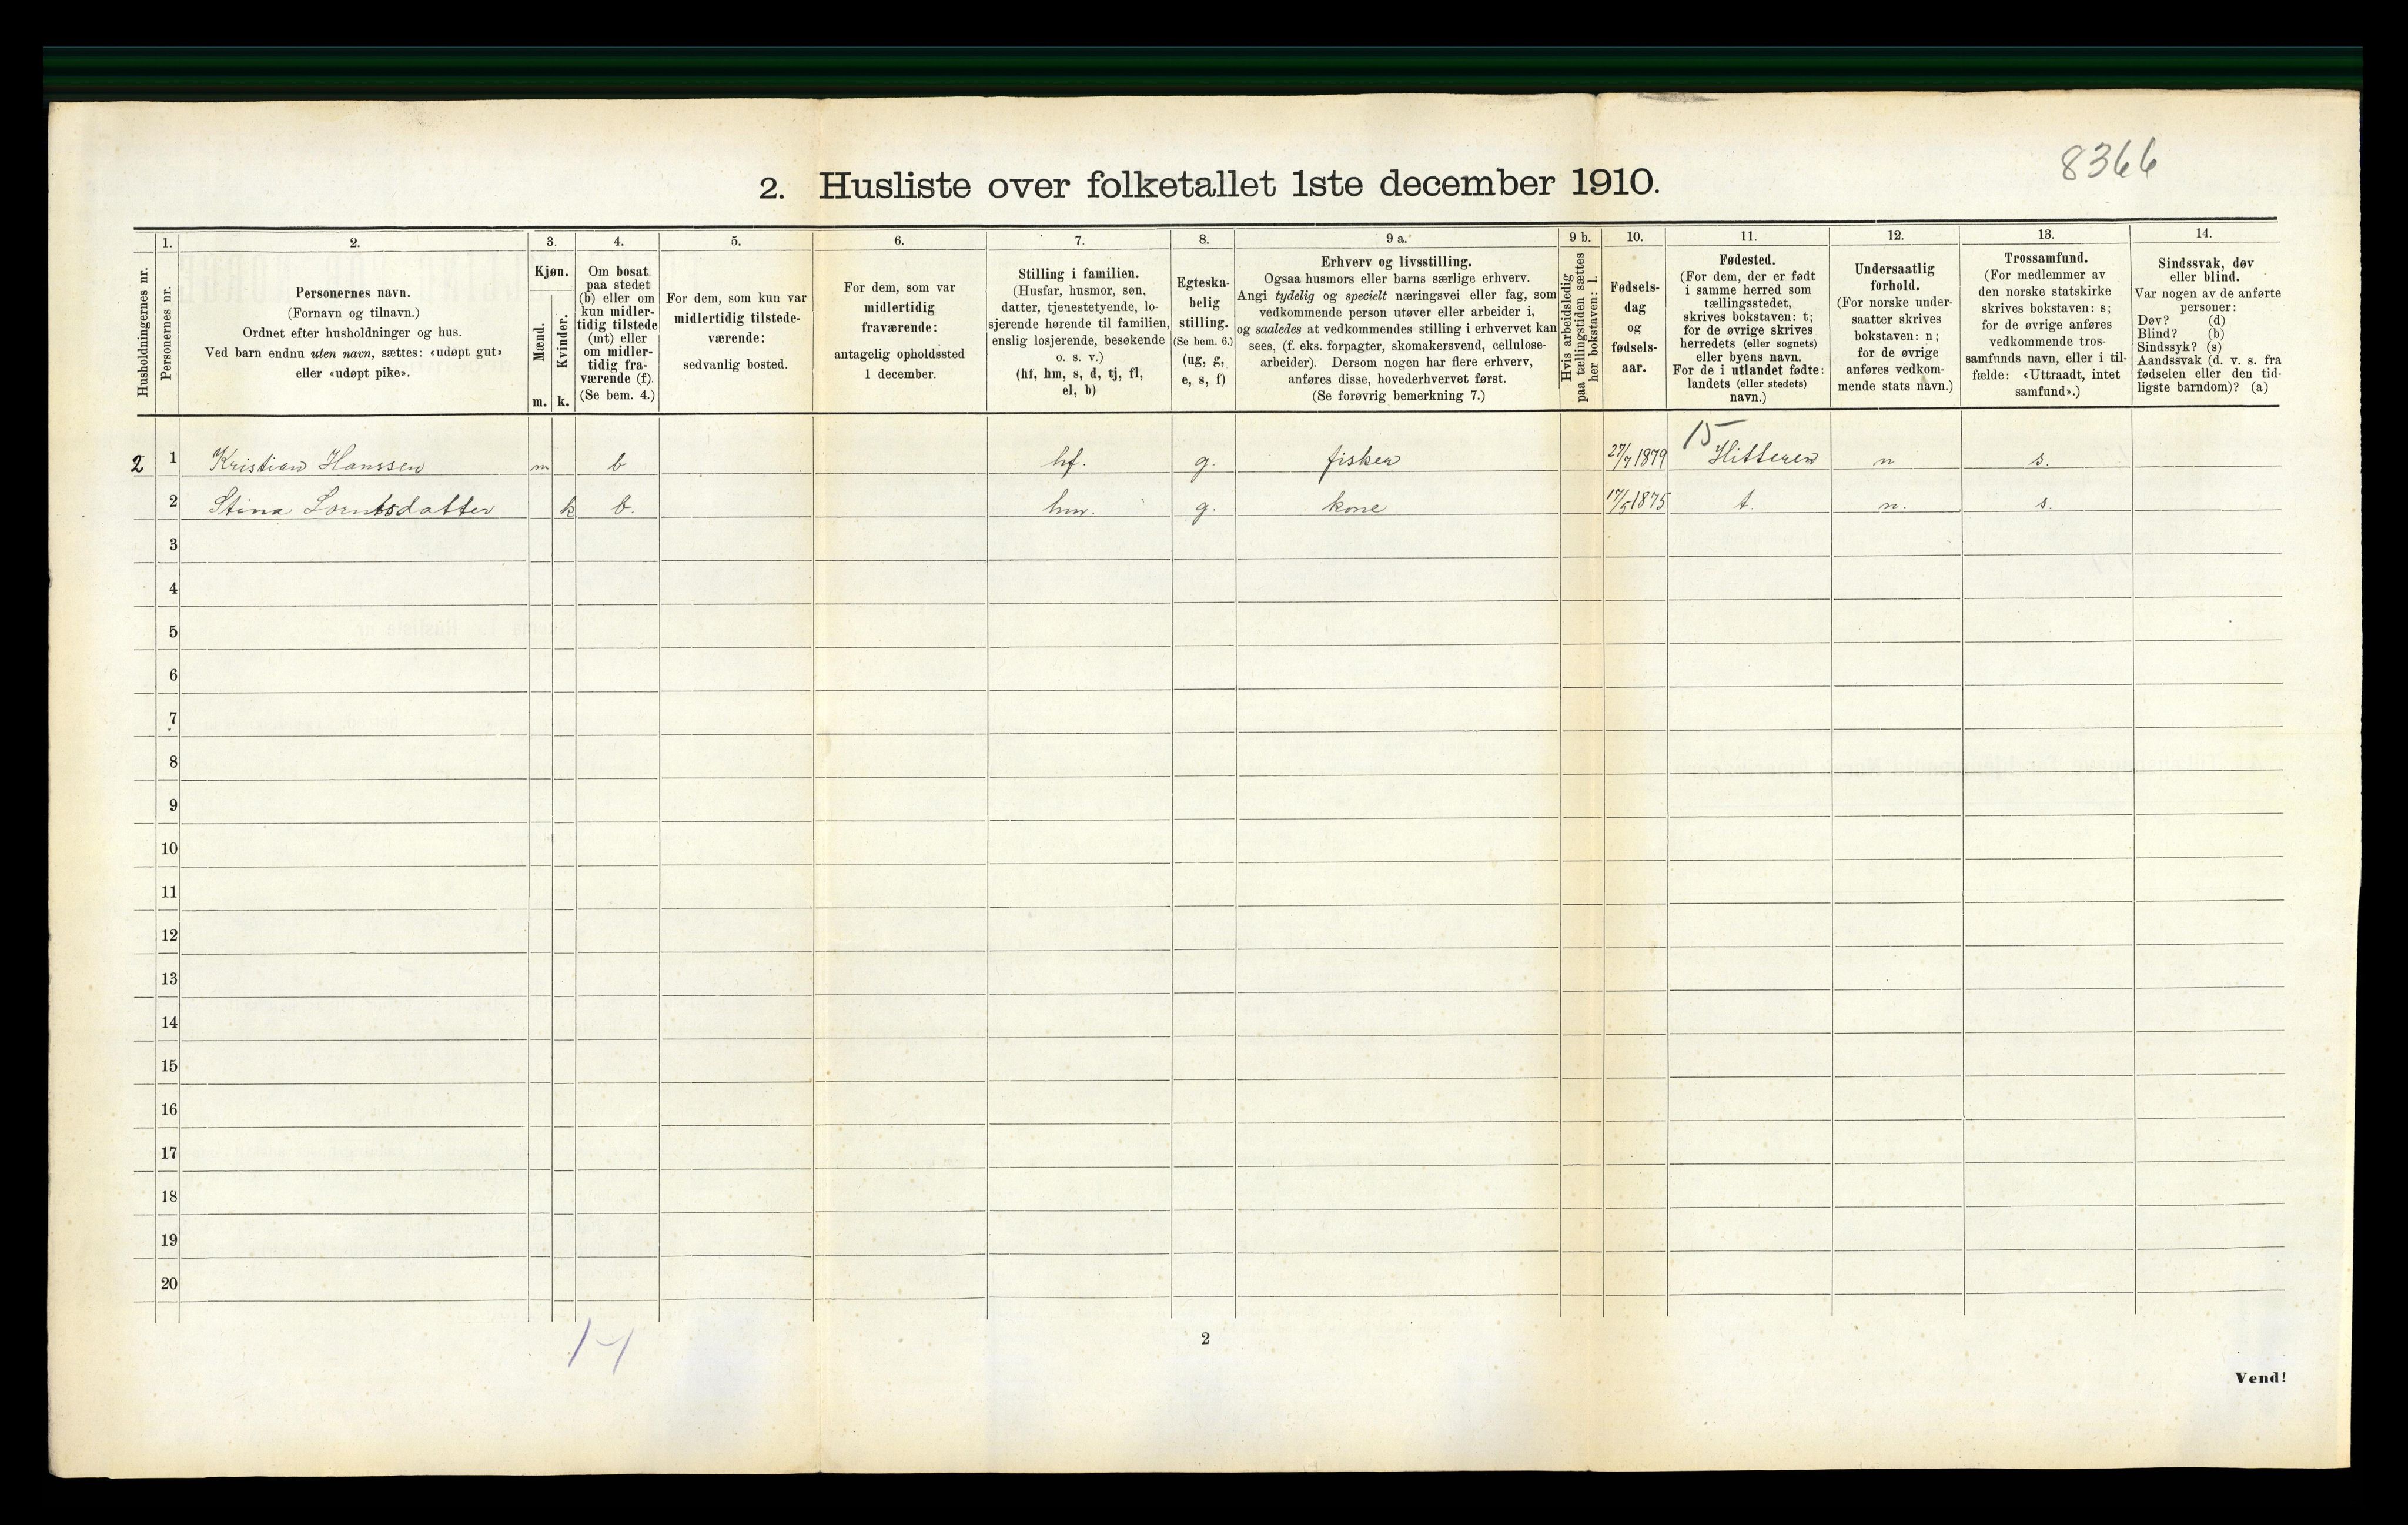 8366
2. Husliste over folketallet 1ste december 1910.
Husholdningernes nr.
1.
Personernes nr.
2.
Personernes navn.
(Fornavn og tilnavn.)
Ordnet efter husholdninger og hus.
Ved barn endnu uten navn, sættes: «udøpt gut»
eller «udøpt pike».
3.
Kjøn.
Mænd.
Kvinder.
m. k.
4.
Om bosat
paa stedet
(b) eller om
kun midler-
tidig tilstede
(mt) eller
om midler-
tidig fra-
værende (f).
(Se bem. 4.)
5.
For dem, som kun var
midlertidig tilstede-
værende:
sedvanlig bosted.
6.
For dem, som var
midlertidig
fraværende:
antagelig opholdssted
1 december.
7.
Stilling i familien.
(Husfar, husmor, søn,
datter, tjenestetyende, lo-
sjerende hørende til familien,
enslig losjerende, besøkende
o. s. v.)
(hf, hm, s, d, tj, fl,
el, b)
8.
Egteska-
belig
stilling.
(Se bem. 6.)
(ug, g,
e, s, f)
9 a.
Erhverv og livsstilling.
Ogsaa husmors eller barns særlige erhverv.
Angi tydelig og specielt næringsvei eller fag, som
vedkommende person utøver eller arbeider i,
og saaledes at vedkommendes stilling i erhvervet kan
sees, (f. eks. forpagter, skomakersvend, cellulose-
arbeider). Dersom nogen har flere erhverv,
anføres disse, hovederhvervet først.
(Se forøvrig bemerkning 7.)
9 b.
Hvis arbeidsledig
paa tællingstiden sættes
her bokstaven: l.
10.
Fødsels-
dag
og
fødsels-
aar.
11.
Fødested.
(For dem, der er født
i samme herred som
tællingsstedet,
skrives bokstaven: t;
for de øvrige skrives
herredets (eller sognets)
eller byens navn.
For de i utlandet fødte:
landets (eller stedets)
navn.)
12.
Undersaatlig
forhold.
(For norske under-
saatter skrives
bokstaven: n;
for de øvrige
anføres vedkom-
mende stats navn.)
13.
Trossamfund.
(For medlemmer av
den norske statskirke
skrives bokstaven: s;
for de øvrige anføres
vedkommende tros-
samfunds navn, eller i til-
fælde: «Uttraadt, intet
samfund».)
14.
Sindssvak, døv
eller blind.
Var nogen av de anførte
personer:
Døv? (d)
Blind? (b)
Sindssyk? (s)
Aandssvak (d. v. s. fra
fødselen eller den tid-
ligste barndom)? (a)
15
2 1 Kristian Hanssen m b hf. g. fisker 27/7 1879 Hitteren n s.
2 Stina Lorntsdatter k b. hm. g. kone 17/5 1875 t. n. s.
3
4
5
6
7
8
9
10
11
12
13
14
15
16
17
18
19
20
2
Vend!